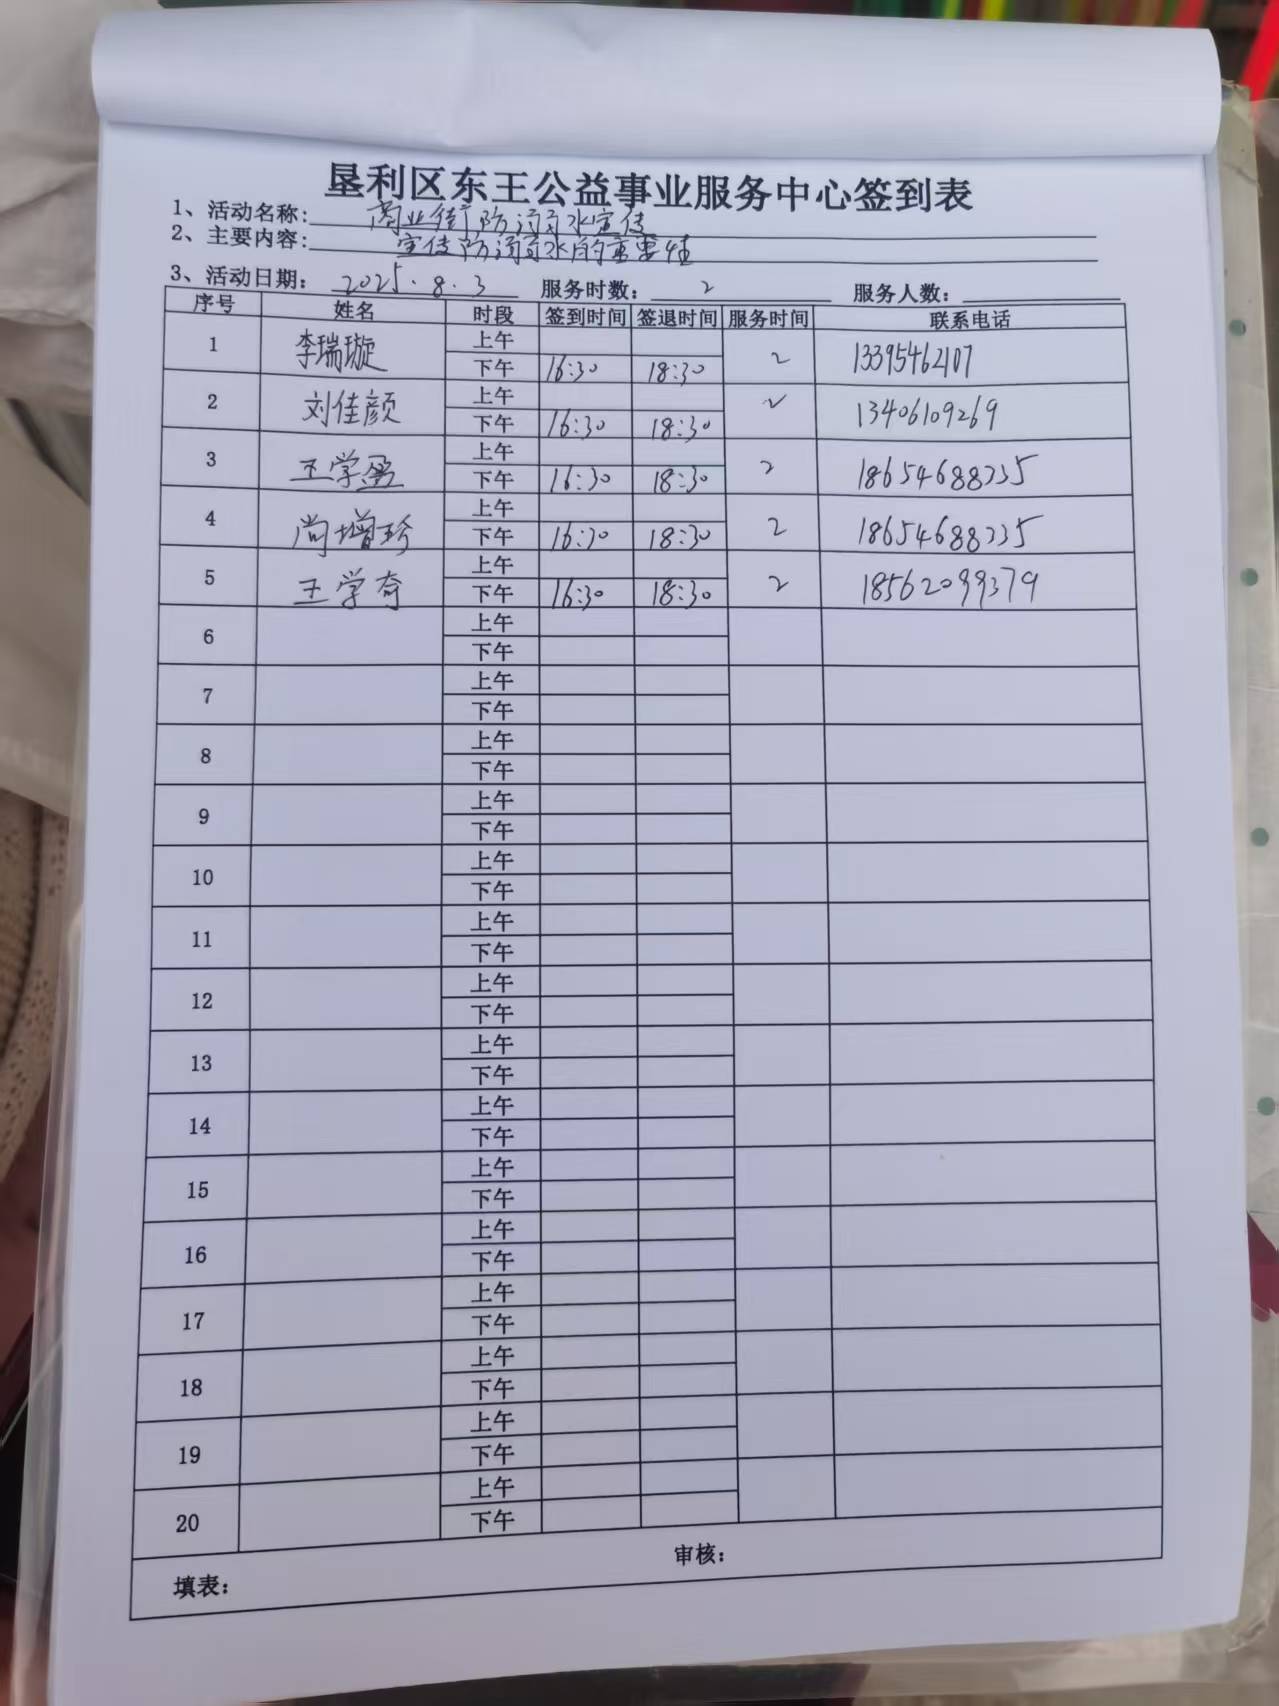 垦利区东王公益事业服务中心签到表
1、活动名称: 商业街防溺水宣传
2、主要内容: 宣传防溺水的重要性
3、活动日期: 2025.8.3 服务时数: 2 服务人数:
序号 姓名 时段 签到时间 签退时间 服务时间 联系电话
1 李瑞璇 上午 2 13395462107
下午 16:30 18:30
2 刘佳颜 上午 2 13406109269
下午 16:30 18:30
3 王学盈 上午 2 18654688735
下午 16:30 18:30
4 尚增珍 上午 2 18654688735
下午 16:30 18:30
5 王学奇 上午 2 18562099379
下午 16:30 18:30
6 上午
下午
7 上午
下午
8 上午
下午
9 上午
下午
10 上午
下午
11 上午
下午
12 上午
下午
13 上午
下午
14 上午
下午
15 上午
下午
16 上午
下午
17 上午
下午
18 上午
下午
19 上午
下午
20 上午
下午
填表: 审核: